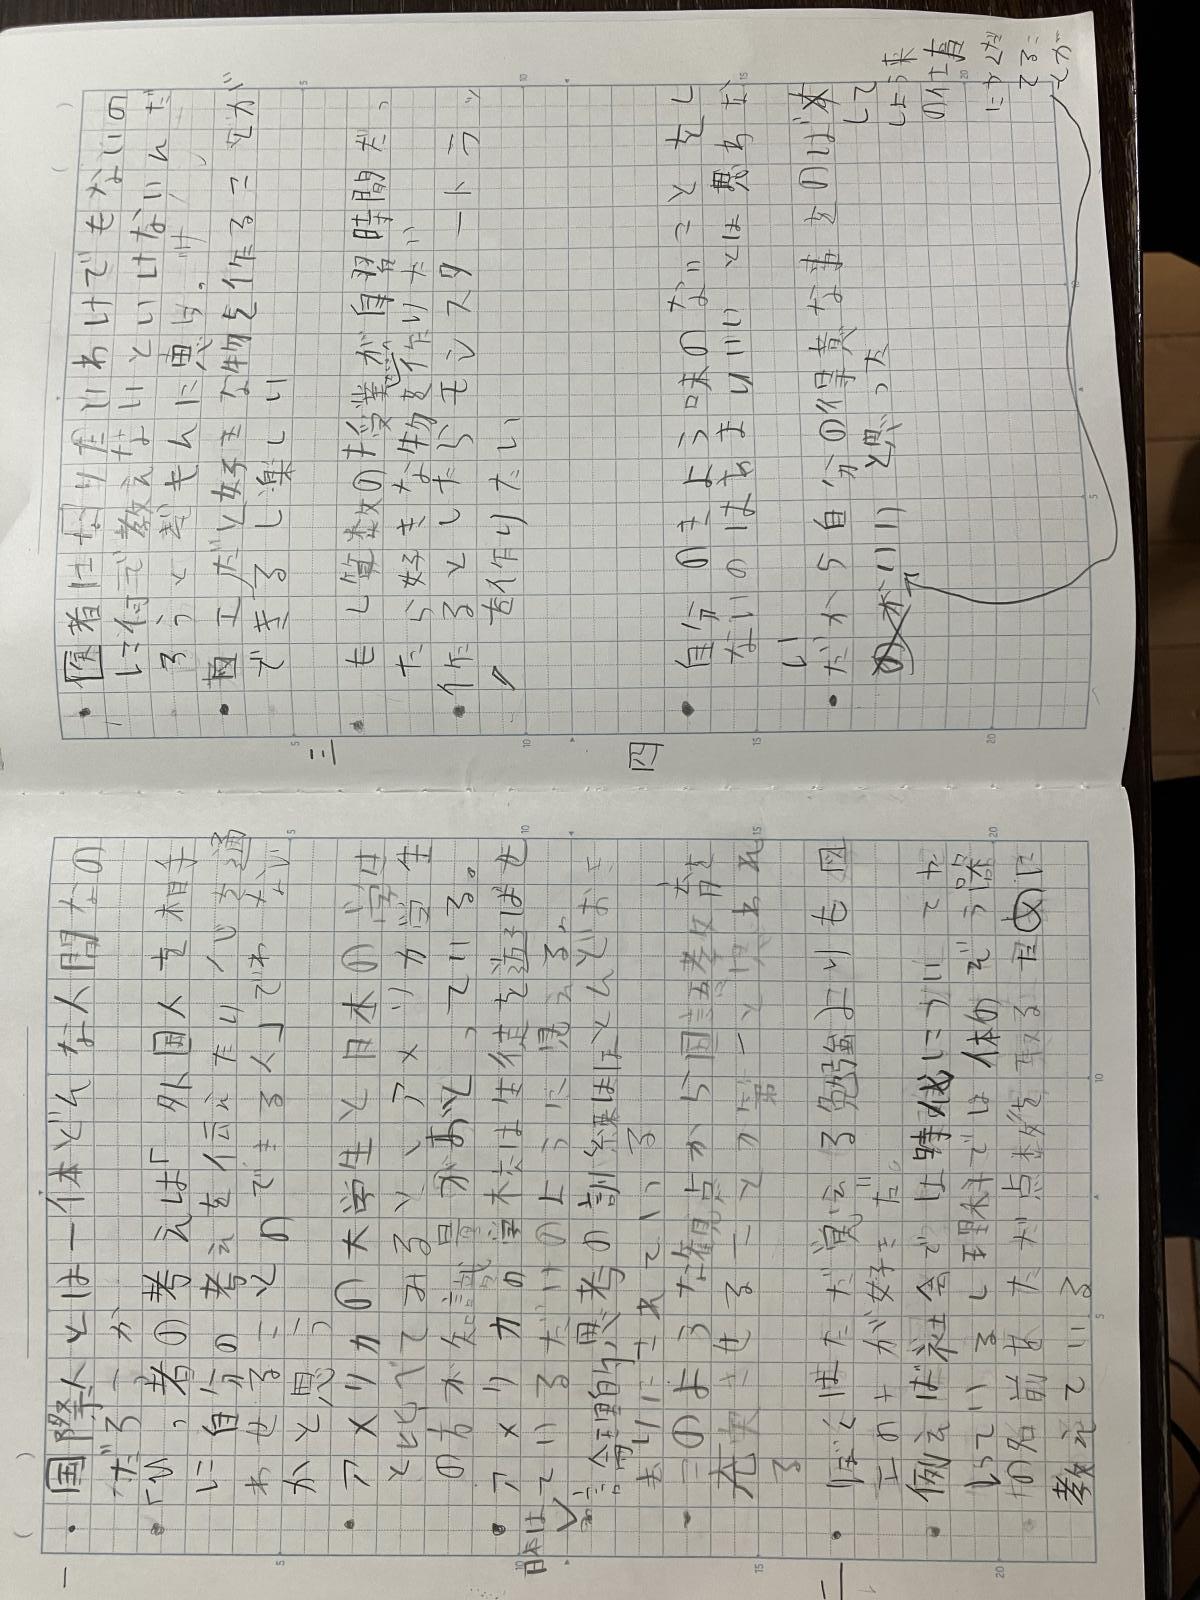 一
・国際人とは一体どんな人間なの
だろうか
・ひっ者の考えは「外国人を相手
に自分の考えを伝えたり心を通
わせることのできる人」でわない
かと思う
・アメリカの大学生と日本の学生
と比べてみると、アメリカ学生は
の方が知識量がおとっている。
・アメリカの学校では生徒を遊ばせ
ているだけのように見える。
日本は
論理的思考の訓練はほとんどおこ
まりにされている
・このような観点から国語教育を
充実させることが第一と思われ
る
二
・ぼくはただ覚える勉強よりも図
工の方が好きだ。
・例えば社会では時代について
って いるし理科では体のぞう器
の名前をただ点数を取るために
教えている
・医者になりたいわけでもないの
に何で教えないといけないんだ
ろうとぎもんに思う。
・図工だと好きな物を作ることが
できるし楽しい
三
・もし算数の授業が自習時間だっ
たら好きな物を作りたい
・作るとしたらモンスタートラッ
クを作りたい
四
・自分のきょう味のないことをし
ないのはあまりいいとは思わな
い
・だから自分の得意な事をのばし
て
しょう来
の仕事
にやくだ
てるこ
とが
いいと思った